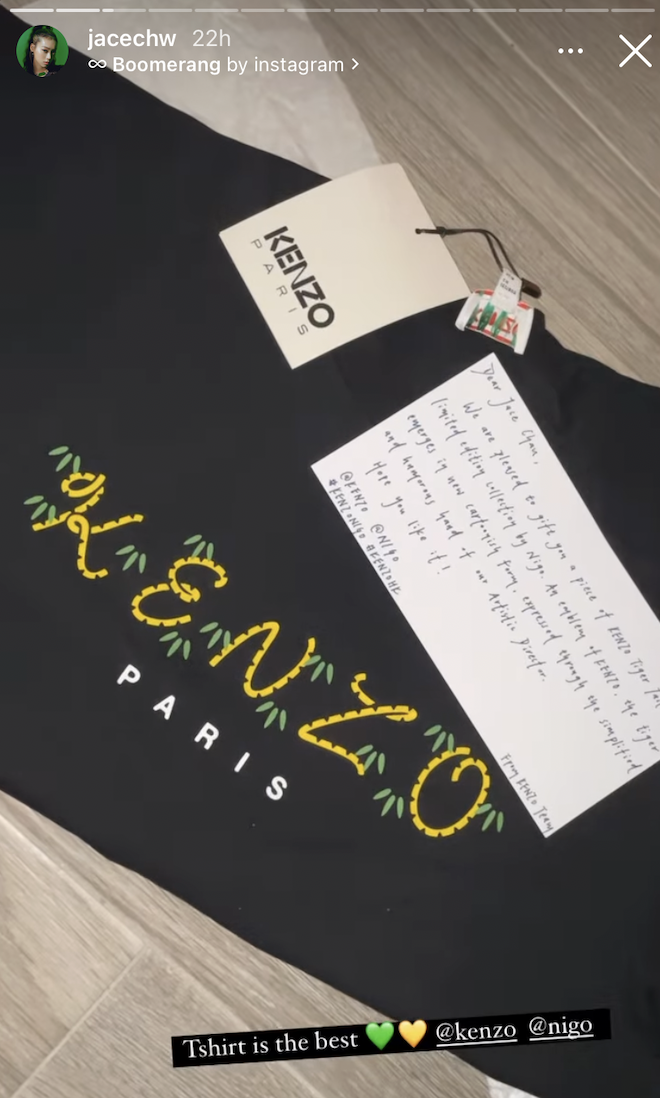 jacechw 22h
∞ Boomerang by instagram >
KENZO
PARIS
Dear Jace Chan,
We are pleased to gift you a piece of KENZO Tiger Tail
limited edition collection by Nigo. An emblem of KENZO, the tiger
emerges in new cartoonish form, expressed through the simplified
and humorous hand of our Artistic Director.
Hope you like it!
@KENZO @NIGO
#KENZONIGO #KENZOHK
From KENZO Team
KENZO
PARIS
Tshirt is the best 💚💛 @kenzo @nigo